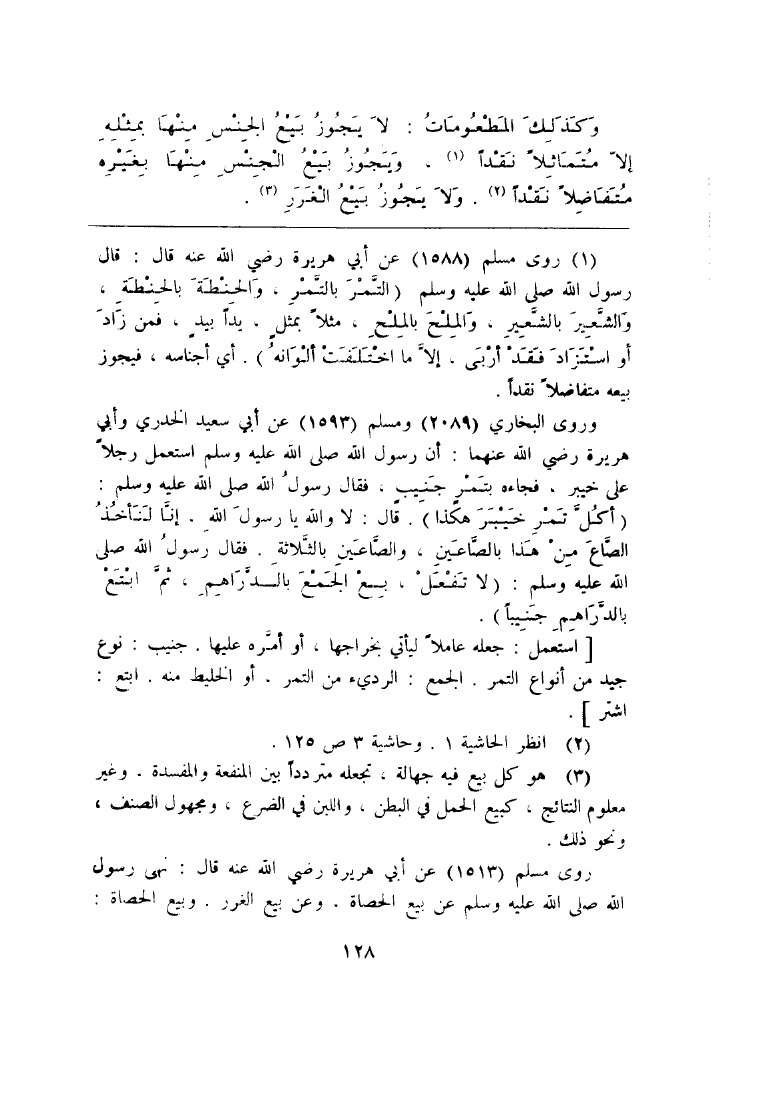 وَكَذَلِكَ المَطْعُومَاتُ : لاَ يَجُوزُ بَيْعُ الجِنْسِ مِنْهَا بِمِثْلِهِ
إلاَّ مُتَمَاثِلاً نَقْداً (١) . وَيَجُوزُ بَيْعُ الْجِنْسِ مِنْهَا بِغَيْرِهِ
مُتَفَاضِلاً نَقْداً (٢) . وَلاَ يَجُوزُ بَيْعُ الْغَرَرِ (٣) .
(١) روى مسلم (١٥٨٨) عن أبي هريرة رضي الله عنه قال : قال
رسول الله صلى الله عليه وسلم (التَّمْرُ بالتَّمْرِ ، وَالحِنْطَةُ بالحِنْطَةِ ،
وَالشَّعِيرُ بالشَّعِيرِ ، وَالمِلْحُ بالمِلْحِ ، مثلاً بمثلٍ ، يداً بيدٍ ، فمن زَادَ
أو اسْتَزَادَ فَقَدْ أرْبَى ، إلاَّ ما اخْتَلَفَتْ ألْوَانُهُ) . أي أجناسه ، فيجوز
بيعه متفاضلاً نقداً .
وروى البخاري (٢٠٨٩) ومسلم (١٥٩٣) عن أبي سعيد الخدري وأبي
هريرة رضي الله عنهما : أن رسول الله صلى الله عليه وسلم استعمل رجلاً
على خيبر ، فجاءه بتَمْرٍ جَنِيبٍ ، فقال رسولُ الله صلى الله عليه وسلم :
(أكُلُّ تَمْرِ خَيْبَرَ هكَذا) . قال : لا والله يا رسولَ الله . إنَّا لَنَأخُذُ
الصَّاعَ مِنْ هَذا بالصَّاعَيْنِ ، والصَّاعَينِ بالثَّلاثة . فقال رَسولُ الله صلى
الله عليه وسلم : (لا تَفْعَلْ ، بِعِ الجَمْعَ بالدَّرَاهِمِ ، ثُمَّ ابْتَعْ
بالدَّرَاهِمِ جَنِيباً) .
[ استعمل : جعله عاملاً ليأتي بخراجها ، أو أمَّره عليها . جنيب : نوع
جيد من أنواع التمر . الجمع : الرديء من التمر . أو الخليط منه . ابتع :
اشتر ] .
(٢) انظر الحاشية ١ . وحاشية ٣ ص ١٢٥ .
(٣) هو كل بيع فيه جهالة ، تجعله متردداً بين المنفعة والمفسدة . وغير
معلوم النتائج ، كبيع الحمل في البطن ، واللبن في الضرع ، ومجهول الصنف ،
ونحو ذلك .
روى مسلم (١٥١٣) عن أبي هريرة رضي الله عنه قال : نهى رسول
الله صلى الله عليه وسلم عن بيع الحصاة . وعن بيع الغرر . وبيع الحصاة :
١٢٨